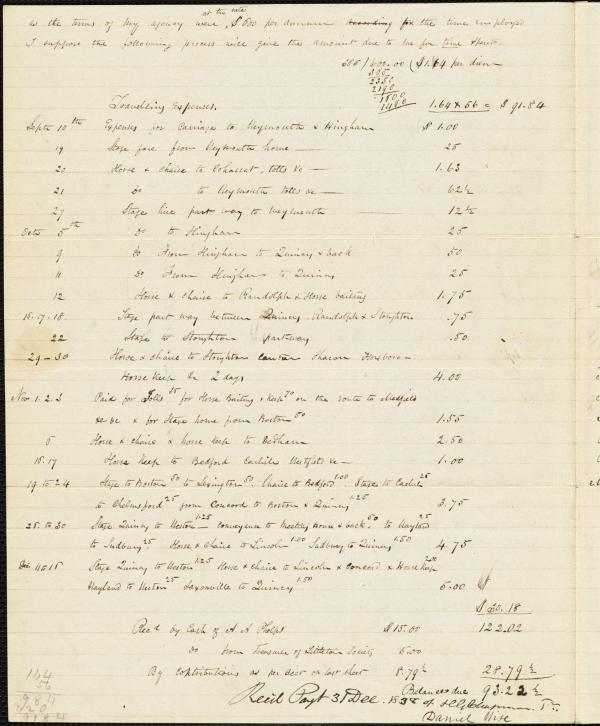 at the rate
as the terms of my agency were $600 per annum according for the time employed
I suppose the following process will give the amount due to me for time spent.
365 / 600.00 ( $1.64 per diem
365
2350
2190
1600
1460
1.64 x 56 = $91.84
Travelling Expenses.
Septr 10th Expenses for Carriage to Weymouth & Hingham $1.00
19 Stage fare from Weymouth home — 25
20 Horse & chaise to Cohasset, tolls &c — 1.63
21 Do to Weymouth tolls &c — 62 1/2
27 Stage hire part way to Weymouth — 12 1/2
Octr 5th Do to Hingham 25
9 Do From Hingham to Quincy & back 50
11 Do From Hingham to Quincy 25
12 Horse & chaise to Randolph & Horse baiting 1.75
16.17.18. Stage part way between Quincy, Randolph & Stoughton .75
22 Stage to Stoughton part way .50
29-30 Horse & chaise to Stoughton Canton Sharon Foxboro —
Horse Keep &c 2 days 4.00
Nov 1.2.3 Paid for Tolls 35 for Horse Baiting & Keep 70 on the route to Medfield
&c &c & for Stage home from Boston 50 1.55
5 Horse & chaise & horse keep to Dedham 2.50
15.17 Horse Keep to Bedford Carlisle Westford &c — 1.00
19 to 24 Stage to Boston 50 to Lexington 50. Chaise to Bedford 1.00 Stage to Carlisle 25
to Chelmsford 25 from Concord to Boston & Quincy 1.25 3.75
25 to 30 Stage Quincy to Weston 1.25 — conveyance to Meeting House & back 50 to Wayland 25
to Sudbury 25. Horse & Chaise to Lincoln 1.00 Sudbury to Quincy 1.50 4.75
Dec 11 to 15 Stage Quincy to Weston 1.25 Horse & chaise to Lincoln & Concord & Horse Keep 2.00
Wayland to Weston 25 Saxonville to Quincy 1.50 5.00
$30.18
Recd by Cash of A A Phelps $15.00 122.02
Do from Treasurer of Littleton Society 5.00
By Contributions as per acct on last sheet 8.79 1/2 28.79 1/2
Balance due 93.22 1/2
Recd Payt 31 Dec. 1838 of H G Chapman Tr.
Daniel Wise
164
56
984
820
9184